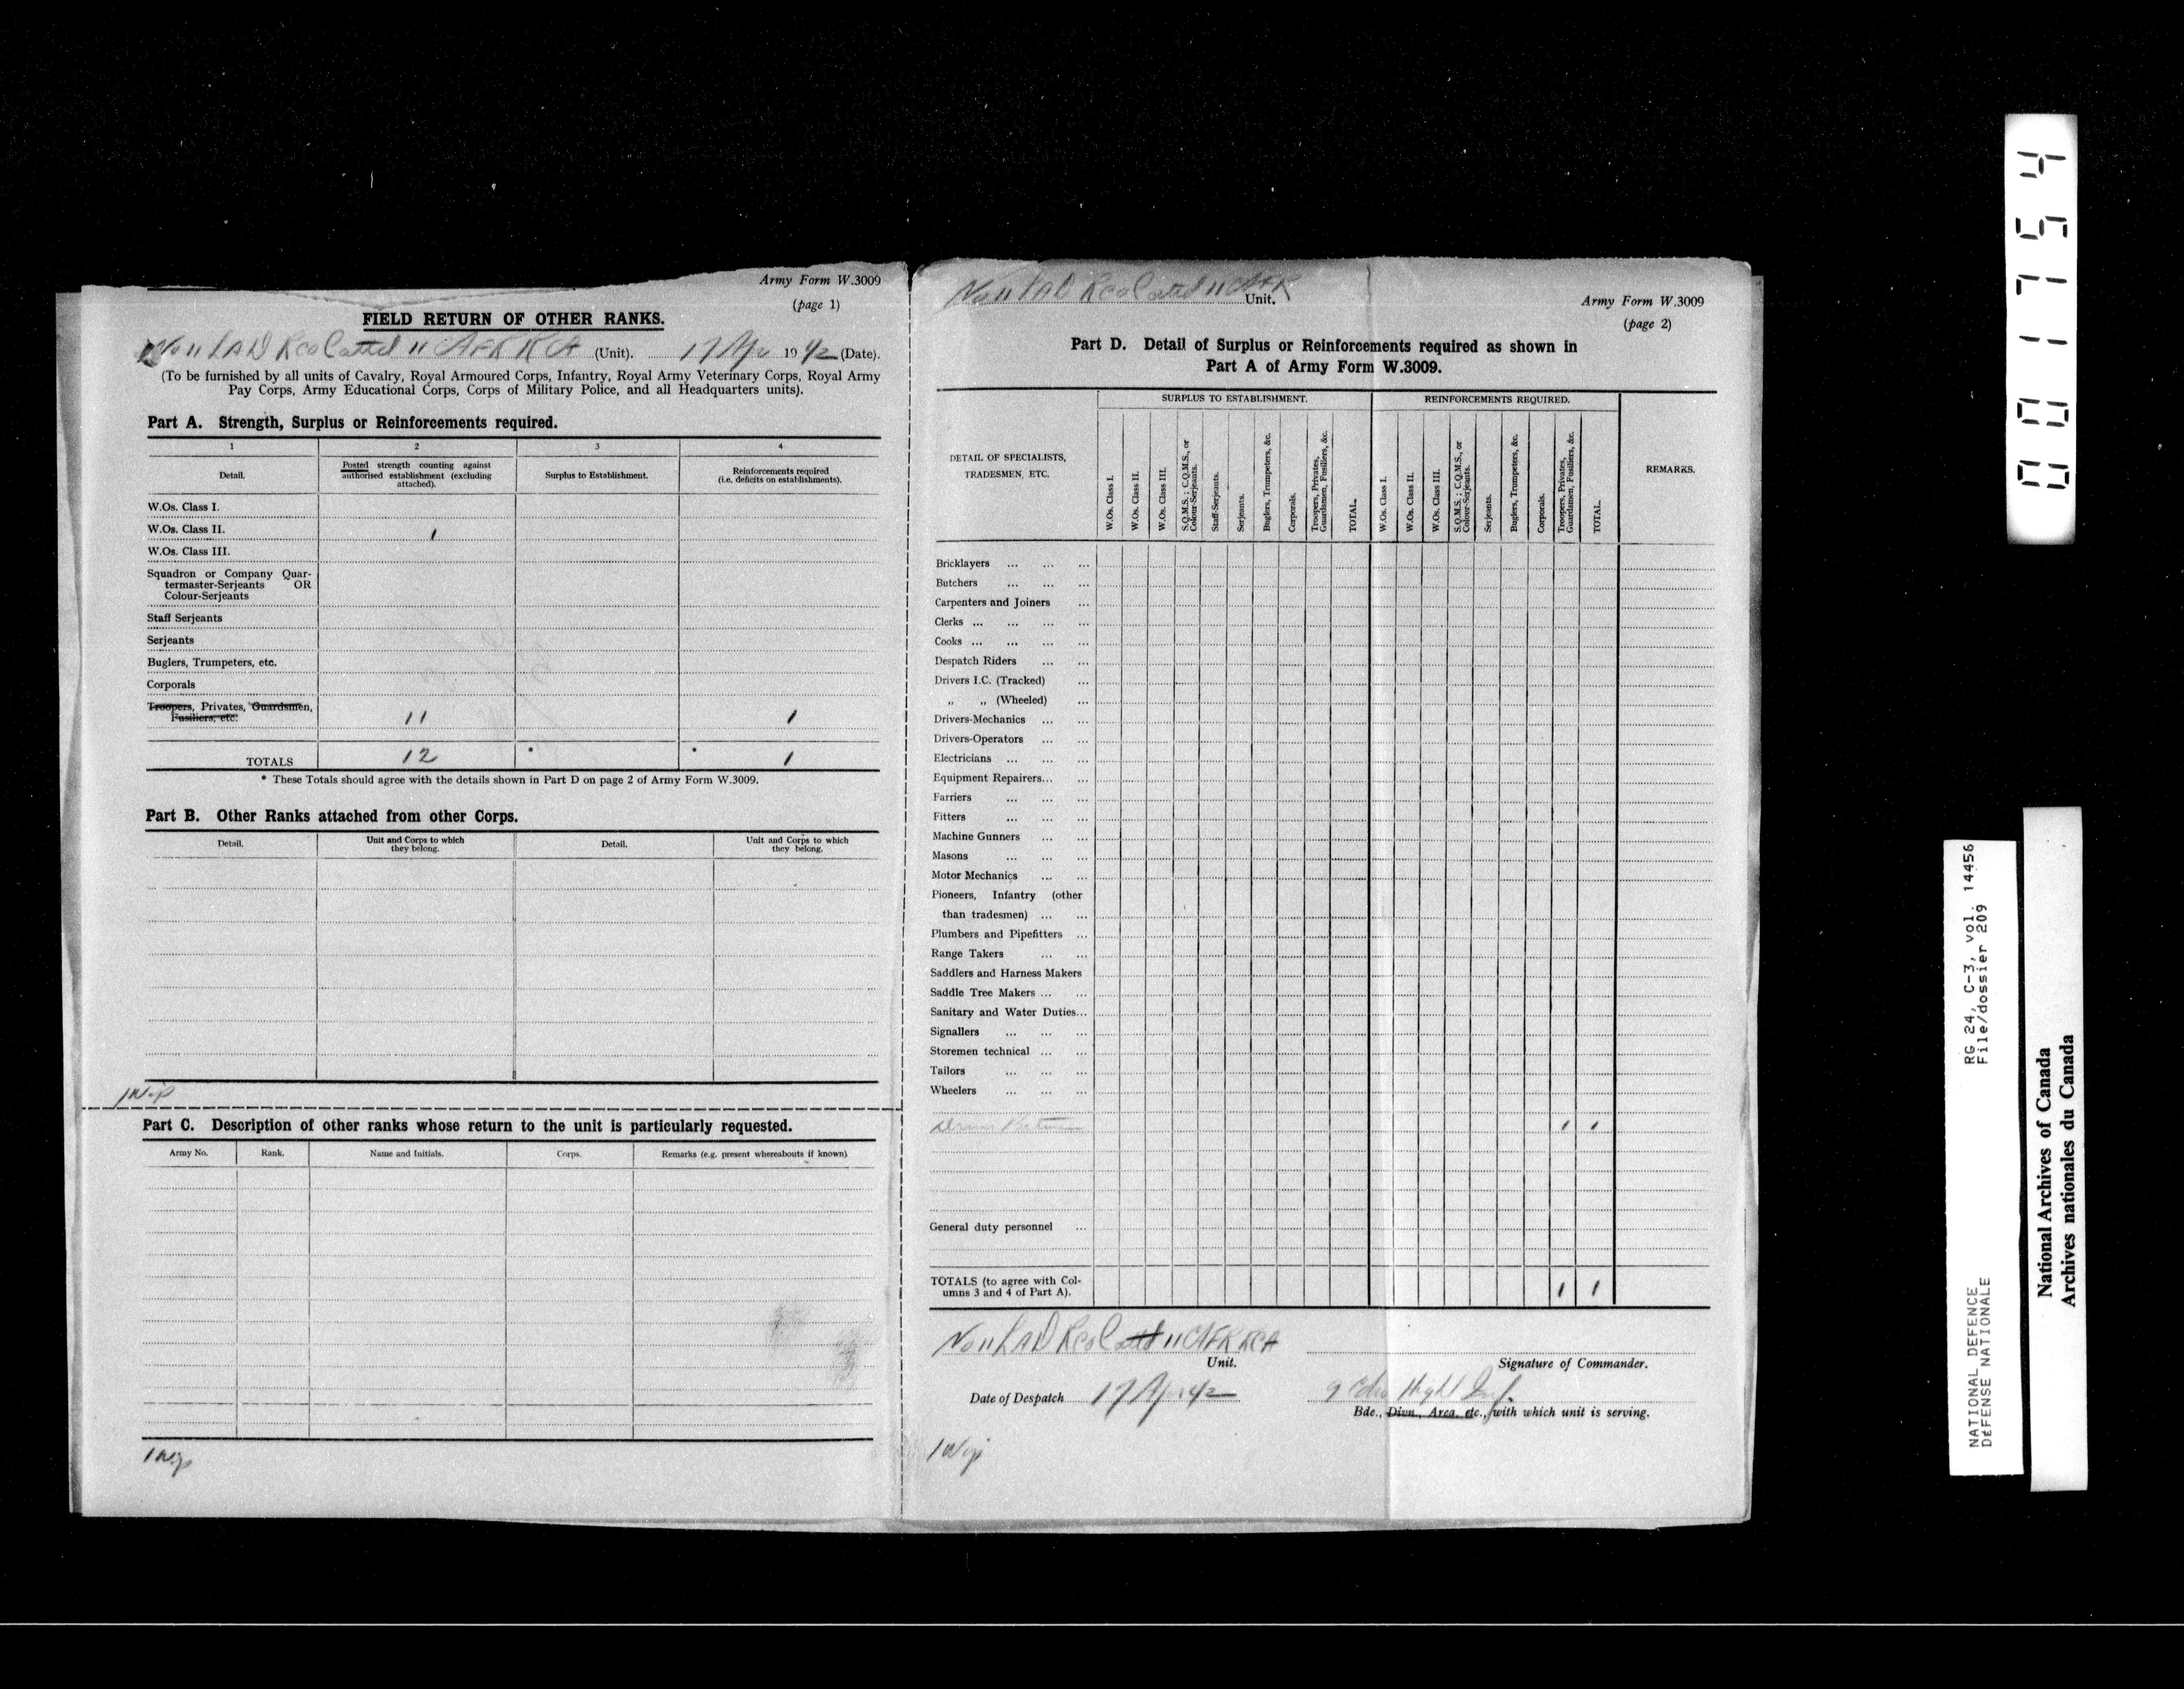 Army Form W.3009
(page 1)
FIELD RETURN OF OTHER RANKS.
No 11 LAD RCOC attd 11 CAFR RCA (Unit). 17 Apr 1942 (Date).
(To be furnished by all units of Cavalry, Royal Armoured Corps, Infantry, Royal Army Veterinary Corps, Royal Army
Pay Corps, Army Educational Corps, Corps of Military Police, and all Headquarters units).
Part A. Strength, Surplus or Reinforcements required.
1 2 3 4
Detail. Posted strength counting against authorised establishment (excluding attached). Surplus to Establishment. Reinforcements required (i.e. deficits on establishments).
W.Os. Class I.
W.Os. Class II. 1
W.Os. Class III.
Squadron or Company Quar-
termaster-Serjeants OR
Colour-Serjeants
Staff Serjeants
Serjeants
Buglers, Trumpeters, etc.
Corporals
Troopers, Privates, Guardsmen,
Fusiliers, etc. 11 1
TOTALS 12 * * 1
* These Totals should agree with the details shown in Part D on page 2 of Army Form W.3009.
Part B. Other Ranks attached from other Corps.
Detail. Unit and Corps to which they belong. Detail. Unit and Corps to which they belong.
Part C. Description of other ranks whose return to the unit is particularly requested.
Army No. Rank. Name and Initials. Corps. Remarks (e.g. present whereabouts if known).
No 11 LAD RCOC attd 11 CAFR Unit.
Army Form W.3009
(page 2)
Part D. Detail of Surplus or Reinforcements required as shown in
Part A of Army Form W.3009.
DETAIL OF SPECIALISTS,
TRADESMEN, ETC.
SURPLUS TO ESTABLISHMENT. REINFORCEMENTS REQUIRED. REMARKS.
W.Os. Class I.
W.Os. Class II.
W.Os. Class III.
S.Q.M.S.; C.Q.M.S., or
Colour-Serjeants.
Staff-Serjeants.
Serjeants.
Buglers, Trumpeters, &c.
Corporals.
Troopers, Privates,
Guardsmen, Fusiliers, &c.
TOTAL.
W.Os. Class I.
W.Os. Class II.
W.Os. Class III.
S.Q.M.S.; C.Q.M.S., or
Colour-Serjeants.
Serjeants.
Buglers, Trumpeters, &c.
Corporals.
Troopers, Privates,
Guardsmen, Fusiliers, &c.
TOTAL.
Bricklayers ... ... ...
Butchers ... ... ...
Carpenters and Joiners ...
Clerks ... ... ... ...
Cooks ... ... ... ...
Despatch Riders ... ...
Drivers I.C. (Tracked) ...
„ „ (Wheeled) ...
Drivers-Mechanics ... ...
Drivers-Operators ... ...
Electricians ... ... ...
Equipment Repairers... ...
Farriers ... ... ...
Fitters ... ... ...
Machine Gunners ... ...
Masons ... ... ...
Motor Mechanics ... ...
Pioneers, Infantry (other
than tradesmen) ... ...
Plumbers and Pipefitters ...
Range Takers ... ...
Saddlers and Harness Makers
Saddle Tree Makers ... ...
Sanitary and Water Duties...
Signallers ... ... ...
Storemen technical ... ...
Tailors ... ... ...
Wheelers ... ... ...
1 1
General duty personnel ...
TOTALS (to agree with Col-
umns 3 and 4 of Part A). 1 1
No 11 LAD RCOC attd 11 CAFR RCA
Unit.
Signature of Commander.
Date of Despatch 17 Apr 42
Bde., Divn., Area, etc., with which unit is serving.
001754
RG 24, C-3, vol. 14456
File/dossier 209
NATIONAL DEFENCE
DÉFENSE NATIONALE
National Archives of Canada
Archives nationales du Canada